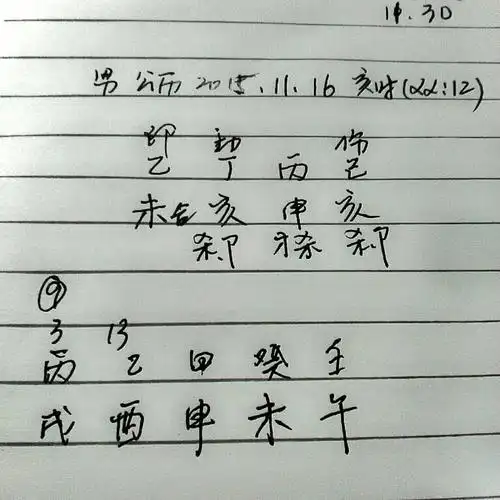 男 公历 2015.11.16 亥时(22:12)
印 劫 伤
乙 丁 丙 己
未合亥 申 亥
杀卩 才杀 杀卩
⑨
3 13
丙 乙 甲 癸 壬
戌 酉 申 未 午